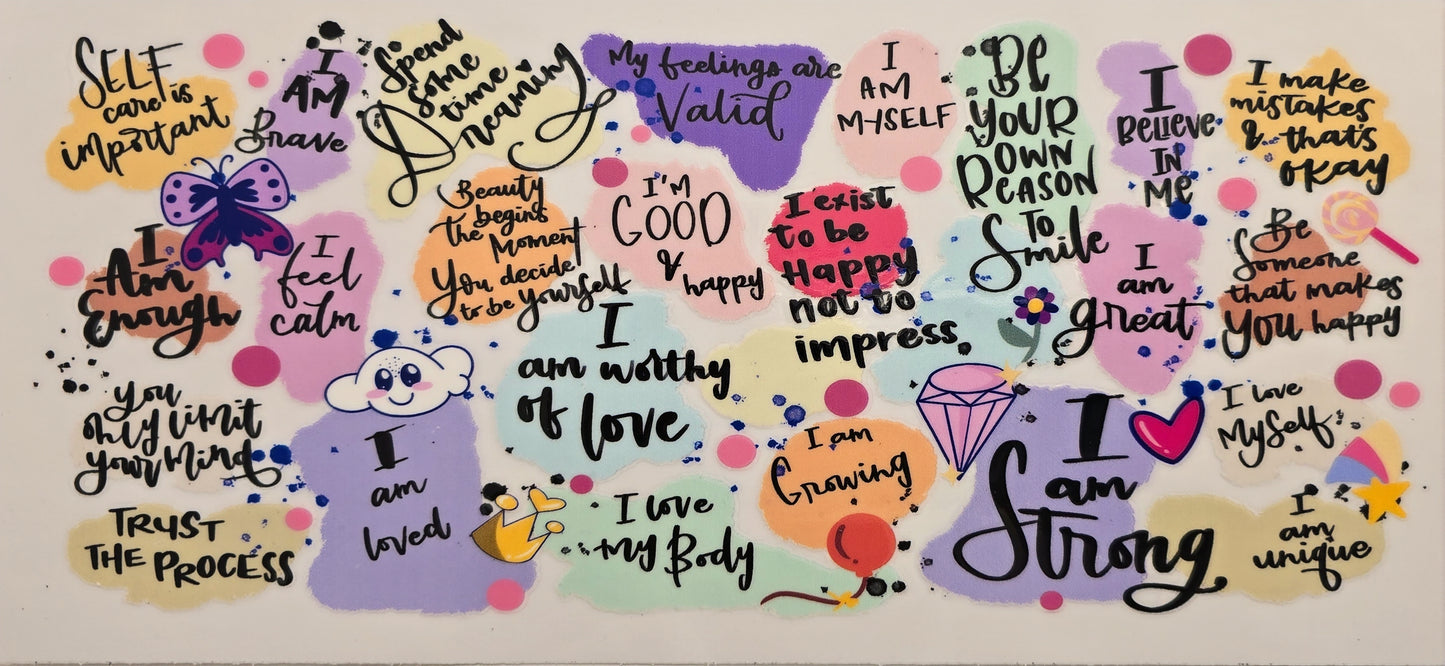 SELF
care is
important
I
AM
Brave
Spend
some
time
Dreaming
My feelings are
Valid
I
AM
MYSELF
BE
YOUR
OWN
REASON
TO
Smile
I
BELIEVE
IN
ME
I make
mistakes
& that's
okay
I
Am
Enough
I
feel
calm
Beauty
begins
the Moment
You decide
to be yourself
I'M
GOOD
&
happy
I exist
to be
Happy
not to
impress
I
am
great
Be
Someone
that makes
you happy
You
only limit
your mind
I
am
loved
I
am worthy
of love
I am
Growing
I
am
Strong
I love
MySelf
TRUST
THE PROCESS
I love
my Body
I
am
unique